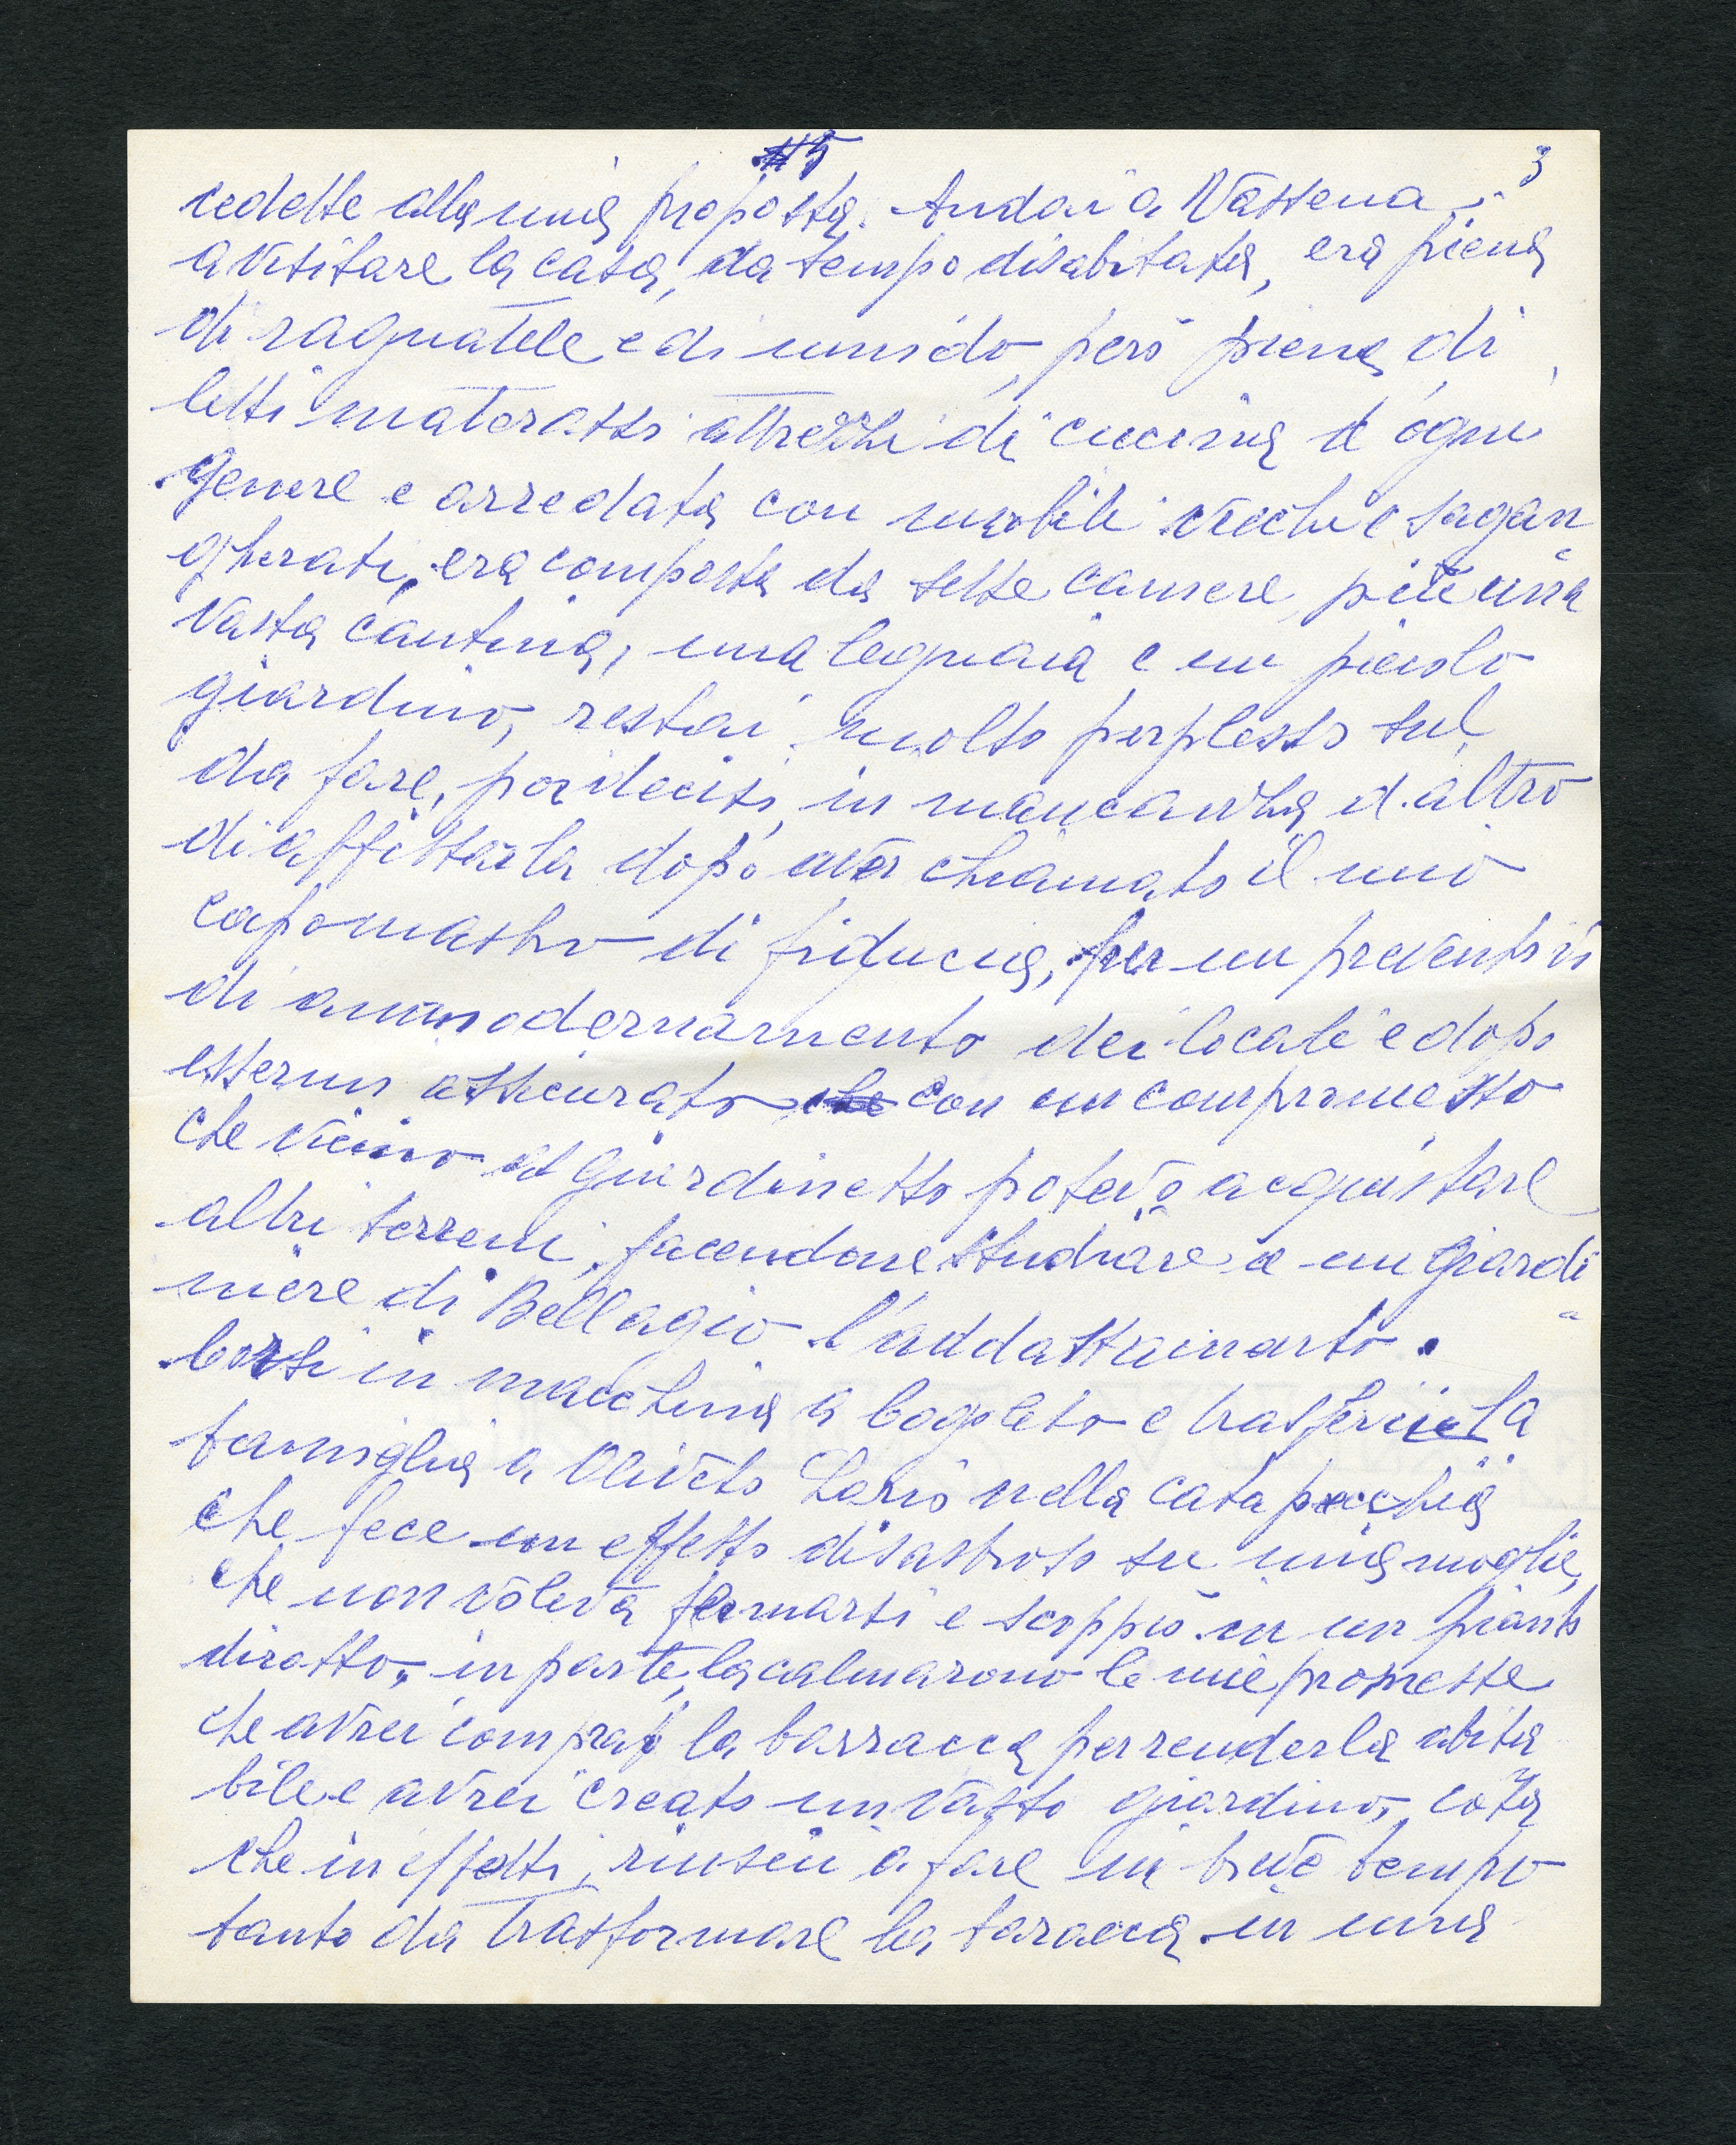 5
3
cedette alla mia proposta. Andai a Vassena
a visitare la casa, da tempo disabitata, era piena
di ragnatele e di umido, però piena di
letti materassi attrezzi di cucina d'ogni
genere e arredata con mobili vecchi e sgan
gherati, era composta da sette camere, più una
vasta cantina, una legnaia e un piccolo
giardino, restai molto perplesso sul
da fare, poi decisi, in mancanza d'altro
di affittarla dopo aver chiamato il mio
capomastro di fiducia, per un preventivo
di ammodernamento dei locali e dopo
essermi assicurato con un compromesso
che vicino al giardinetto potevo acquistare
altri terreni, facendone studiare a un giardi
niere di Bellagio l'addattamento.
Corsi in macchina a e trasferii la
famiglia a Oliveto Lario nella catapecchia
che fece un effetto disastroso su mia moglie,
che non voleva fermarsi e scoppiò in un pianto
dirotto, in parte, la calmarono le mie promesse
che avrei comprato la barracca per renderla abita
bile e avrei creato un vasto giardino, cosa
che in effetti, riuscii a fare in breve tempo
tanto da trasformare la baracca in una